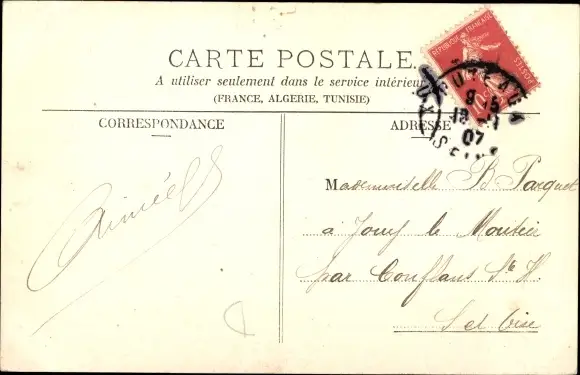 CARTE POSTALE.
A utiliser seulement dans le service intérieur
(FRANCE, ALGERIE, TUNISIE)
CORRESPONDANCE
ADRESSE
RÉPUBLIQUE FRANÇAISE
POSTES
10
PUTEAUX
9 15
07
SEINE
Aimée
Mademoiselle B Parquet
à Jouy le Moutier
par Conflans Ste H.
S et Oise